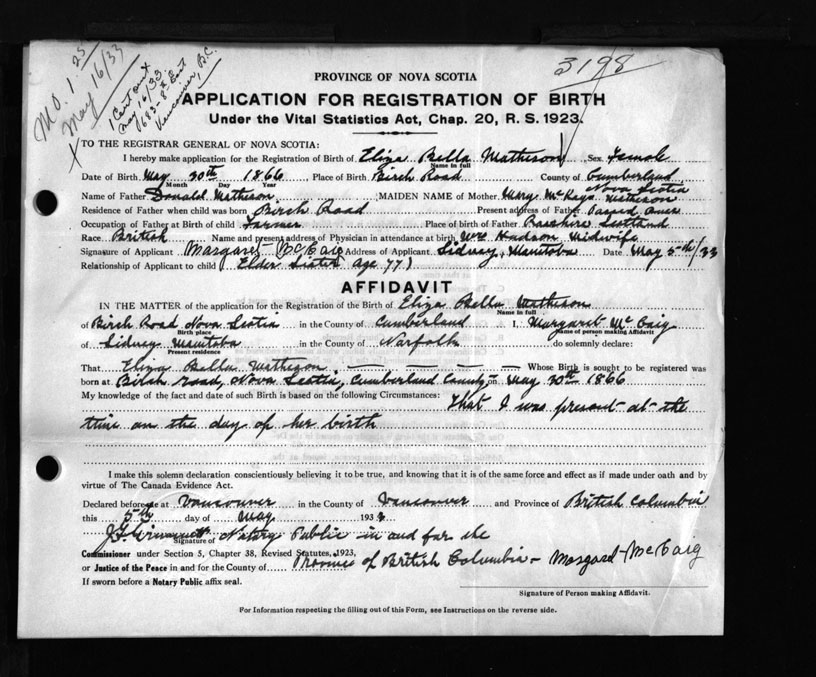 M.O. 1.25
May 16/33
1 Cert out
May 16/33
1683-8th East
Vancouver, B.C.
3198
PROVINCE OF NOVA SCOTIA
APPLICATION FOR REGISTRATION OF BIRTH
Under the Vital Statistics Act, Chap. 20, R. S. 1923.
TO THE REGISTRAR GENERAL OF NOVA SCOTIA:
I hereby make application for the Registration of Birth of Eliza Bella Matheson Sex Female
Name in full
Date of Birth May 30th 1866 Place of Birth Birch Road County of Cumberland
Month Day Year
Nova Scotia
Name of Father Donald Matheson MAIDEN NAME of Mother Mary McKay Matheson
Residence of Father when child was born Birch Road Present address of Father Passed Over
Occupation of Father at Birth of child Farmer Place of birth of Father Scotland
Race British Name and present address of Physician in attendance at birth Wm Hudson Midwife
Signature of Applicant Margaret McCaig Address of Applicant Sidney, Manitoba Date May 5th/33
Relationship of Applicant to child Elder Sister age 77)
AFFIDAVIT
IN THE MATTER of the application for the Registration of the Birth of Eliza Bella Matheson
Name in full
of Birch Road Nova Scotia in the County of Cumberland I, Margaret McCaig
Birth place Name of person making Affidavit
of Sidney Manitoba in the County of Norfolk do solemnly declare:
Present residence
That Eliza Bella Matheson Whose Birth is sought to be registered was
born at Birch road, Nova Scotia, Cumberland County on May 30th 1866
My knowledge of the fact and date of such Birth is based on the following Circumstances: That I was present at the
time on the day of her birth
I make this solemn declaration conscientiously believing it to be true, and knowing that it is of the same force and effect as if made under oath and by
virtue of The Canada Evidence Act.
Declared before me at Vancouver in the County of Vancouver and Province of British Columbia
this 5th day of May 1933
Notary Public in and for the
Signature of
Commissioner under Section 5, Chapter 38, Revised Statutes, 1923,
or Justice of the Peace in and for the County of Province of British Columbia - Margaret McCaig
If sworn before a Notary Public affix seal.
Signature of Person making Affidavit.
For Information respecting the filling out of this Form, see Instructions on the reverse side.